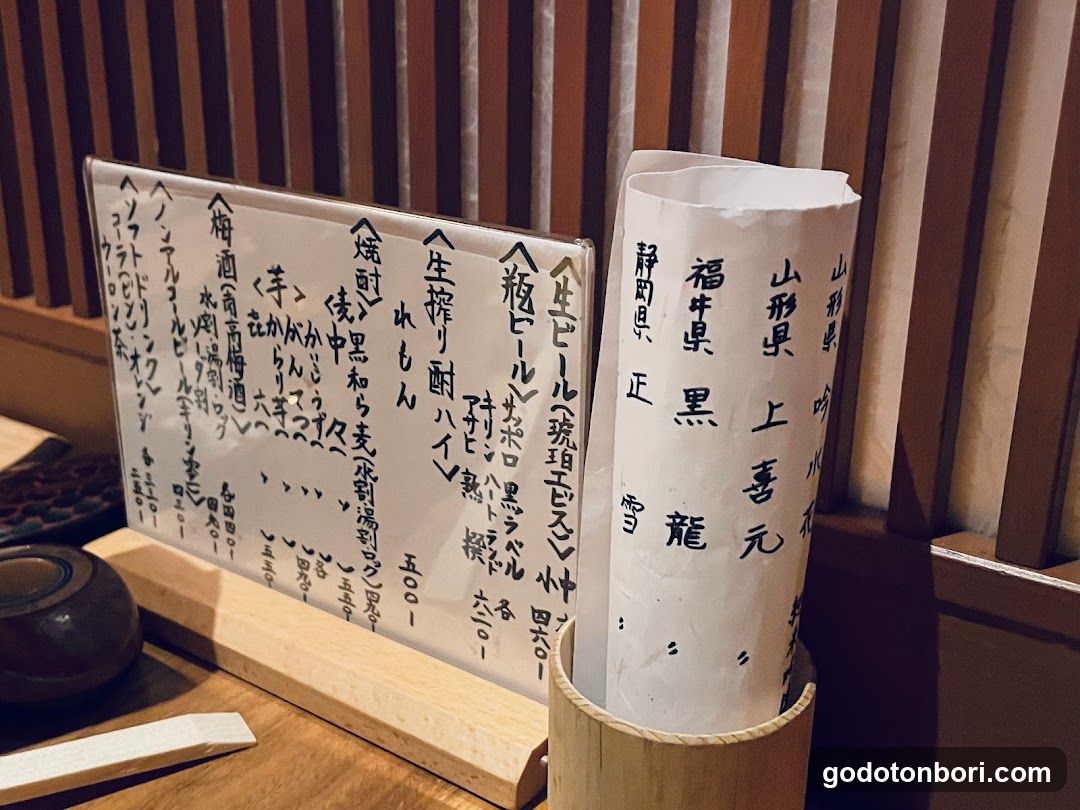 〈生ビール(琥珀エビス)〉中
小 四六〇-
〈瓶ビール〉サッポロ 黒ラベル
キリン ハートランド 各
アサヒ 熟撰 六二〇-
〈生搾り酎ハイ〉
れもん 五〇〇-
〈焼酎〉黒和ら麦(水割湯割ロック)四九〇-
〈麦〉中々 〃 五五〇-
かいこうず 〃 各
〈芋〉がんてつ 〃 四九〇-
からり芋 〃
㐂六 〃 五五〇-
〈梅酒(南高梅酒)〉
水割・湯割・ロック 各四四〇-
ソーダ割 四九〇-
〈ノンアルコールビール(キリン零)〉 四三〇-
〈ソフトドリンク〉
コーラ(ビン)・オレンジ 各三三〇-
ウーロン茶 二五〇-
山形県 吟水花
山形県 上喜元 〃
福井県 黒龍 〃
静岡県 正雪 〃
godotonbori.com